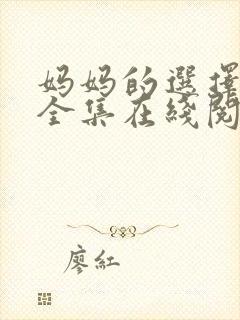 妈妈的選擇
全集在线閱
廖紅